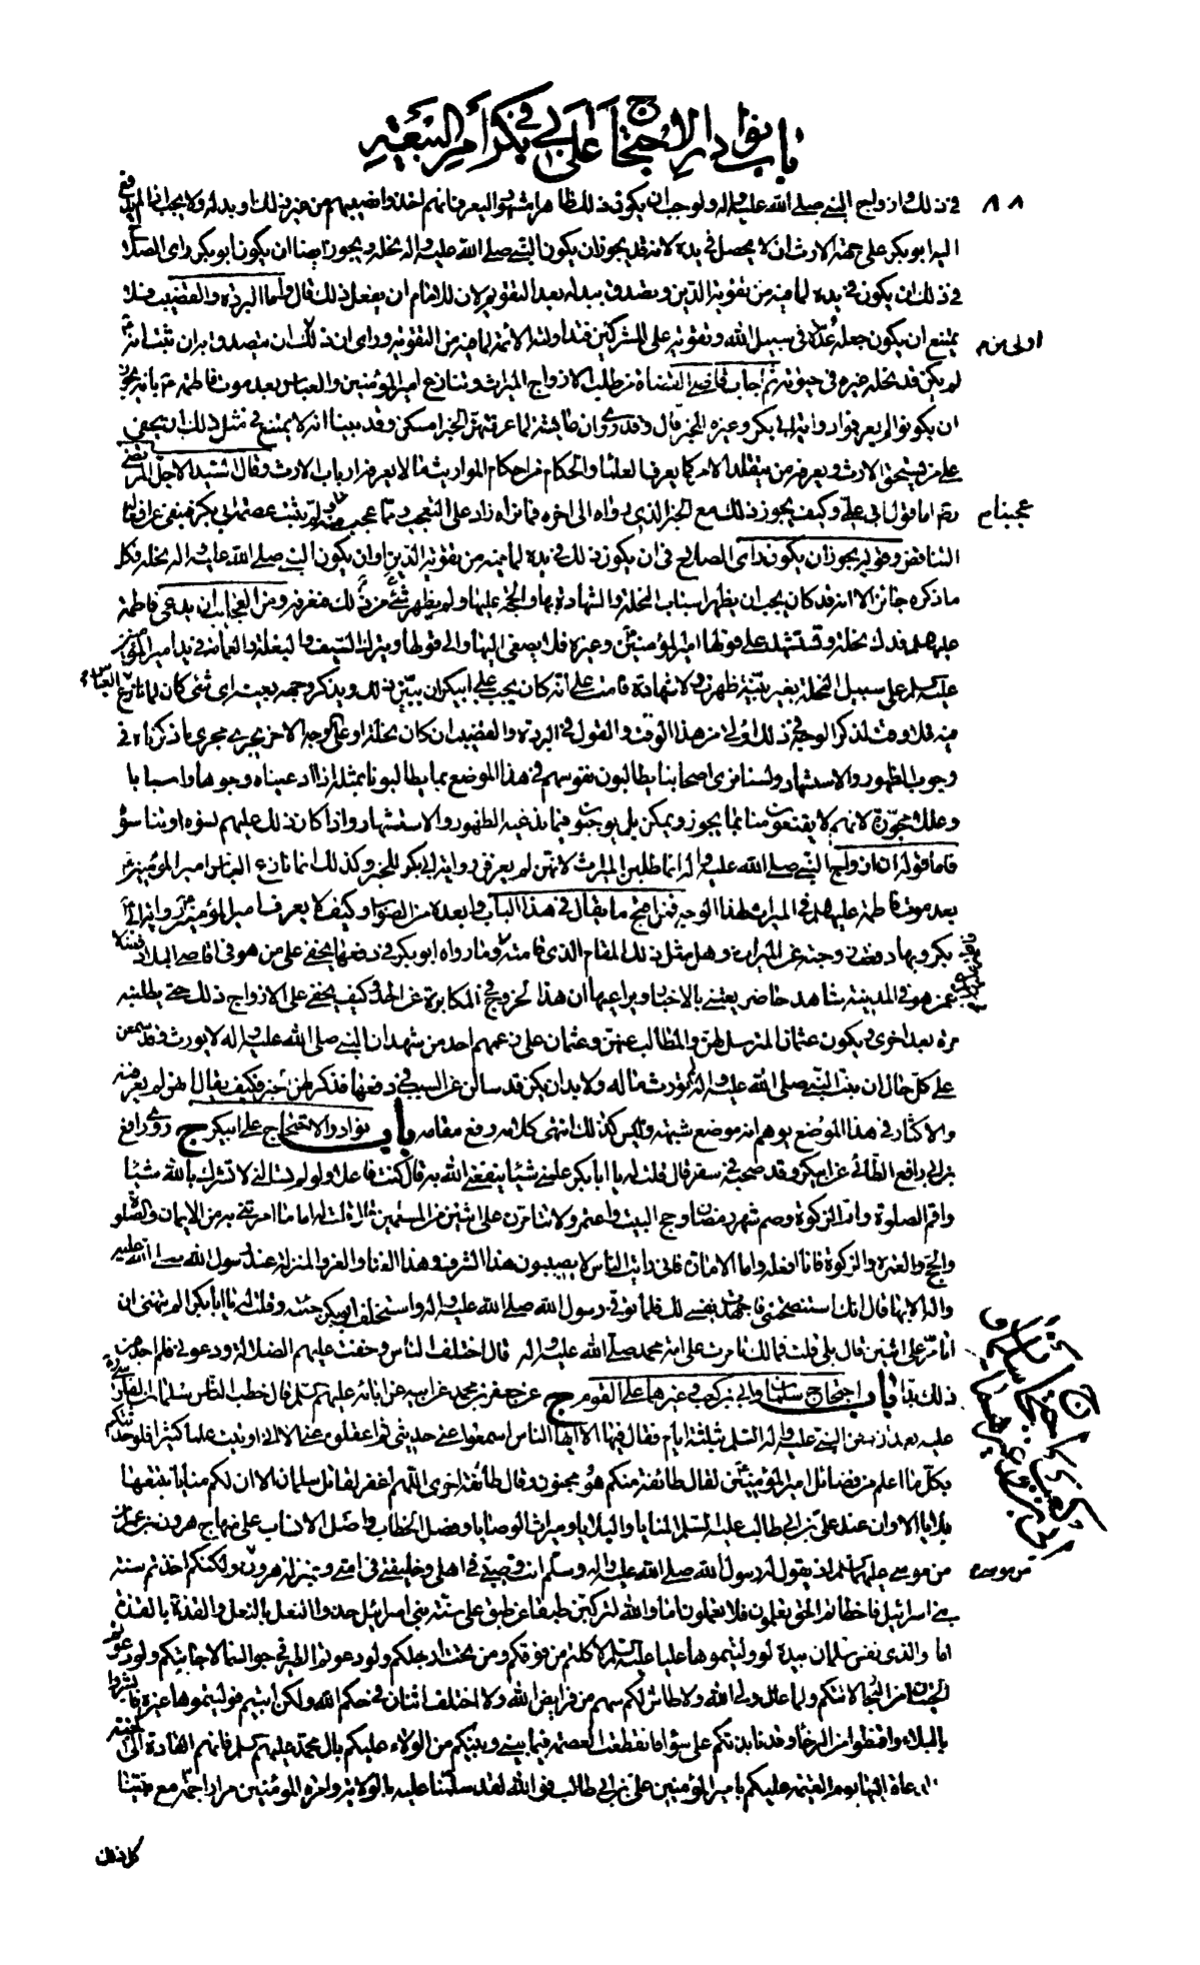 باب نوادر الاحتجاج على أبي بكر في أمر البيعة
٨٨
في ذلك وازواج النبي صلى الله عليه واله ولوجب ان يكون ذلك ظاهرا مشهورا ليعرف انهم اخذوا نصيبهم من غير ذلك او بدله ولا يجب اذا لم يدفع
اليه ابو بكر على جهة الارث ان لا يحصل في يده لانه قد يجوز ان يكون النبي صلى الله عليه واله نحله ويجوز ايضا ان يكون ابو بكر رأى الصلاح
في ذلك ان يكون في يده لما فيه من تقوية الدين وتصدق ببدله بعد التقويم لان للامام ان يفعل ذلك قال واما البردة والقضيب فلا
يمتنع ان يكون جعله عدة في سبيل الله وتقوية على المشركين فتداولته الائمة لما فيه من التقوية ورأى ان ذلك ان يتصدق به ان ثبت انه ع
اولى من م
لم يكن قد نحله غيره في حيوته ثم اجاب قاضي القضاة من طلب الازواج الميراث وتنازع امير المؤمنين والعباس بعد موت فاطمة ع بانه يجوز
ان يكونوا لم يعرفوا رواية ابي بكر وغيره للخبر قال وقد روى ان عائشة لما عرفتهن الخبر امسكن وقد بينا انه لا يمتنع في مثل ذلك ان يخفى
على من يستحق الارث ويعرفه من يتقلد الامر كما يعرف العلماء والحكام من احكام المواريث ما لا يعرفه ارباب الارث وقال السيد الاجل المرتضى
رضه اما قول ابي علي وكيف يجوز ذلك مع الخبر الذي رواه الى اخره فما نراه زاد على التعجب ومما عجب منه ولم يثبت عصمة ابي بكر فينفى عن افعاله
عجبنا م
التناقض وقوله يجوز ان يكون رأى الصلاح في ان يكون ذلك في يده لما فيه من تقوية الدين او ان يكون النبي صلى الله عليه واله نحله فكل
ما ذكره جائز الا انه قد كان يجب ان يظهر اسباب النحلة والشهادة بها والحجة عليها ولم يظهر شئ من ذلك فنعرفه ومن العجائب ان يدعي فاطمة
عليها السلم فدك نحلة وتستشهد على قولها امير المؤمنين وغيره فلا يصغى اليها والى قولها ويترك السيف والبغلة والعمامة في يد امير المؤمنين
عليه السلم على سبيل النحلة بغير بينة ظهرت ولا شهادة قامت على انه كان يجب على ابي بكر ان يبين ذلك ويذكر وجهه بعينه اى شئ كان لما نازع العباس
فيه فلا وقت لذكر الوجه في ذلك اولى من هذا الوقت والقول في البردة والقضيب ان كان نحلة او على الوجه الاخر يجري مجرى ما ذكرناه في
وجوب الظهور والاستشهاد ولسنا نرى اصحابنا يطالبون نفوسهم في هذا الموضع بما يطالبونا بمثله اذا ادعينا وجوها واسبابا
وعللا مجوزة لانهم لا يقنعون منا بما يجوز ويمكن بل يوجبون فيما ندعيه الظهور والاستشهاد واذا كان ذلك عليهم نسوه او تناسوه
فاما قوله ان ازواج النبي صلى الله عليه واله انما طلبن الميراث لانهن لم يعرفن رواية ابي بكر للخبر وكذلك انما نازع العباس امير المؤمنين ع
بعد موت فاطمة عليها السلم في الميراث لهذا الوجه فمن اقبح ما يقال في هذا الباب وابعده من الصواب وكيف لا يعرف امير المؤمنين ع رواية ابي
بكر وبها دفعت زوجته عن الميراث وهل مثل ذلك المقام الذي قامته وما رواه ابو بكر في دفعها يخفى على من هو في اقاصي البلاد فضلا
عمن هو في المدينة شاهد حاضر يعتني بالاخبار ويراعيها ان هذا لخروج في المكابرة عن الحد وكيف يخفى على الازواج ذلك حتى يطلبنه
مرة بعد اخرى ويكون عثمان المترسل لهن والمطالب عنهن وعثمان على زعمهم احد من شهد ان النبي صلى الله عليه واله لا يورث وقد سمعن
على كل حال ان بنت النبي صلى الله عليه واله لم تورث ماله ولا بد ان يكن قد سألن عن السبب في دفعها فذكر لهن الخبر فكيف يقال انهن لم يعرفنه
والاكثار في هذا الموضع يوهم انه موضع شبهة وليس كذلك انتهى كلامه رفع مقامه باب نوادر الاحتجاج على ابي بكر ج روى رافع
بن ابي رافع الطائي عن ابي بكر وقد صحبته في سفر قال قلت له يا ابا بكر علمني شيئا ينفعني الله به قال كنت فاعلا ولو لم تسالني لا تشرك بالله شيئا
واقم الصلوة وات الزكوة وصم شهر رمضان وحج البيت واعتمر ولا تتأمرن على اثنين من المسلمين قال قلت له اما ما امرتني به من الايمان والصلوة
والحج والعمرة والزكوة فانا افعله واما الامارة فاني رايت الناس لا يصيبون هذا الشرف وهذا الغنا والعز والمنزلة عند رسول الله صلى الله عليه
واله الا بها قال انك استنصحتني فاجهدت نفسي لك فلما توفى رسول الله صلى الله عليه واله واستخلف ابو بكر جئته وقلت له يا ابا بكر الم تنهني ان
اتأمر على اثنين قال بلى قلت فما لك تأمرت على امة محمد صلى الله عليه واله قال اختلف الناس وخفت عليهم الضلالة ودعوني فلم اجد من
ذلك بدا باب احتجاج سلمان وابي بن كعب وغيرهما على القوم ج عن جعفر بن محمد عن ابيه عن ابائه عليهم السلم قال خطب الناس سلمان الفارسي ره
عليه بعد ان دفن النبي عليه واله السلم بثلثة ايام فقال فيها الا ايها الناس اسمعوا عني حديثي ثم اعقلوه عني الا اني اوتيت علما كثيرا فلو حدثتكم
بكل ما اعلم من فضائل امير المؤمنين ع لقال طائفة منكم هو مجنون وقال طائفة اخرى اللهم اغفر لقاتل سلمان الا ان لكم منايا تتبعها
بلايا الا وان عند علي بن ابي طالب عليه السلم المنايا والبلايا وميراث الوصايا وفصل الخطاب واصل الانساب على منهاج هرون بن عمران
من موسى عليهما السلم اذ يقول له رسول الله صلى الله عليه واله وسلم انت وصيي في اهلي وخليفتي في امتي وبمنزلة هرون ولكنكم اخذتم سنة
من موسى م
بني اسرائيل فاخطأتم الحق تعلمون فلا تعملون اما والله لتركبن طبقا عن طبق على سنة بني اسرائيل حذو النعل بالنعل والقذة بالقذة
اما والذي نفس سلمان بيده لو وليتموها عليا عليه السلم لاكلتم من فوقكم ومن تحت ارجلكم ولو دعوتم الطير في جو السماء لاجابتكم ولو دعوتم
الحيتان من البحار لاتتكم ولما عال ولي الله ولا طاش لكم سهم من فرايض الله ولا اختلف اثنان في حكم الله ولكن ابيتم فوليتموها غيره فابشروا
بالبلاء واقنطوا من الرخاء وقد نابذتكم على سواء فانقطعت العصمة فيما بيني وبينكم من الولاء عليكم بال محمد عليهم السلم فانهم القادة الى الجنة
والدعاة اليها يوم القيمة عليكم بامير المؤمنين علي بن ابي طالب فوالله لقد سلمنا عليه بالولاية وامرة المؤمنين مرارا جمة مع نبينا
كل ذلك
باب احتجاج سلمان و
ابي بن كعب وغيرهما
على القوم